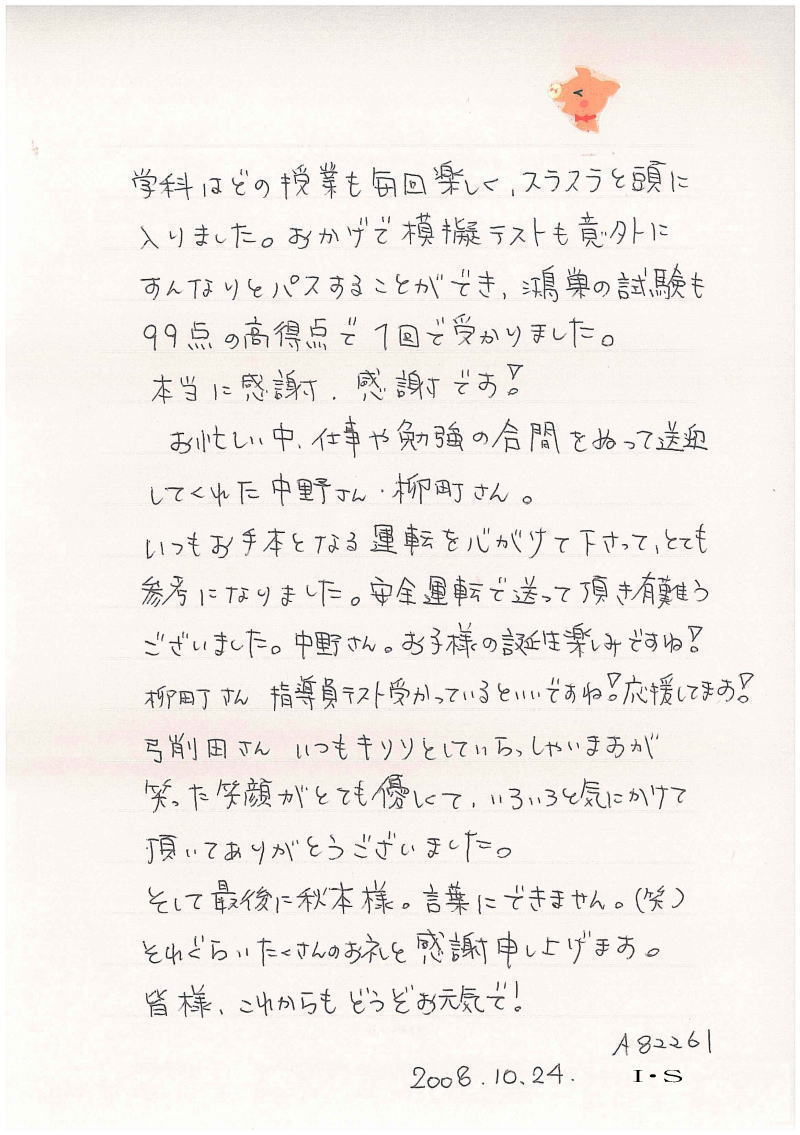 学科はどの授業も毎回楽しく、スラスラと頭に
入りました。おかげで模擬テストも意外に
すんなりとパスすることができ、鴻巣の試験も
99点の高得点で1回で受かりました。
本当に感謝、感謝です!
お忙しい中、仕事や勉強の合間をぬって送迎
してくれた中野さん・柳町さん。
いつもお手本となる運転を心がけて下さって、とても
参考になりました。安全運転で送って頂き有難う
ございました。中野さん。お子様の誕生楽しみですね!
柳町さん 指導員テスト受かっているといいですね!応援してます!
弓削田さん いつもキリリとしていらっしゃいますが
笑った笑顔がとても優しくて、いろいろと気にかけて
頂いてありがとうございました。
そして最後に秋本様。言葉にできません。(笑)
それぐらいたくさんのお礼と感謝申し上げます。
皆様、これからもどうぞお元気で!
A82261
2008.10.24. I・S